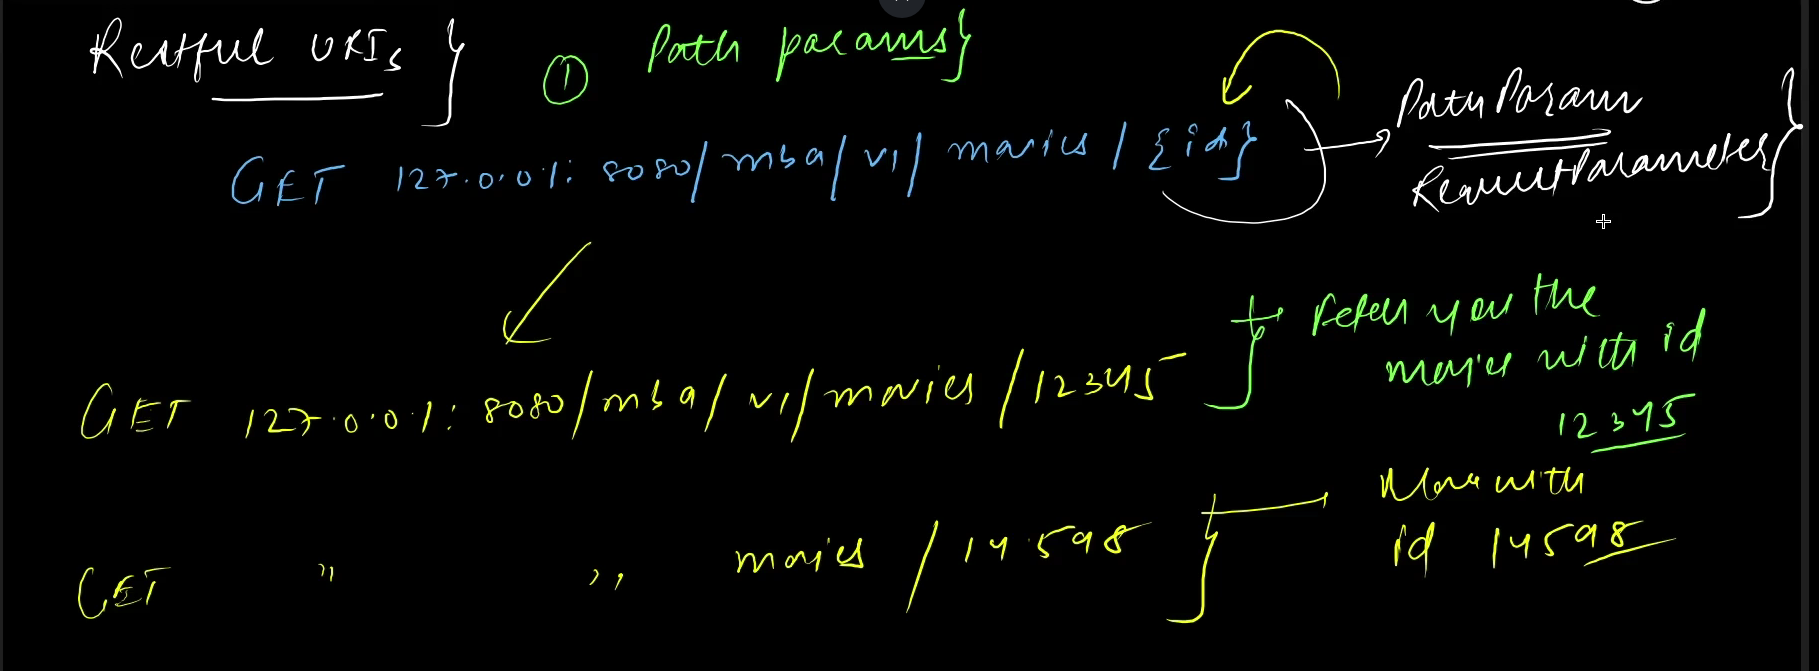 Restful URIs }
① Path params}
GET 127.0.0.1: 8080/mba/v1/ movies / {id}
Path Param
Request Parameter}
GET 127.0.0.1: 8080/mba/v1/movies /12345
Fetch you the
movies with id
12345
GET " " movies / 14598
Move with
id 14598